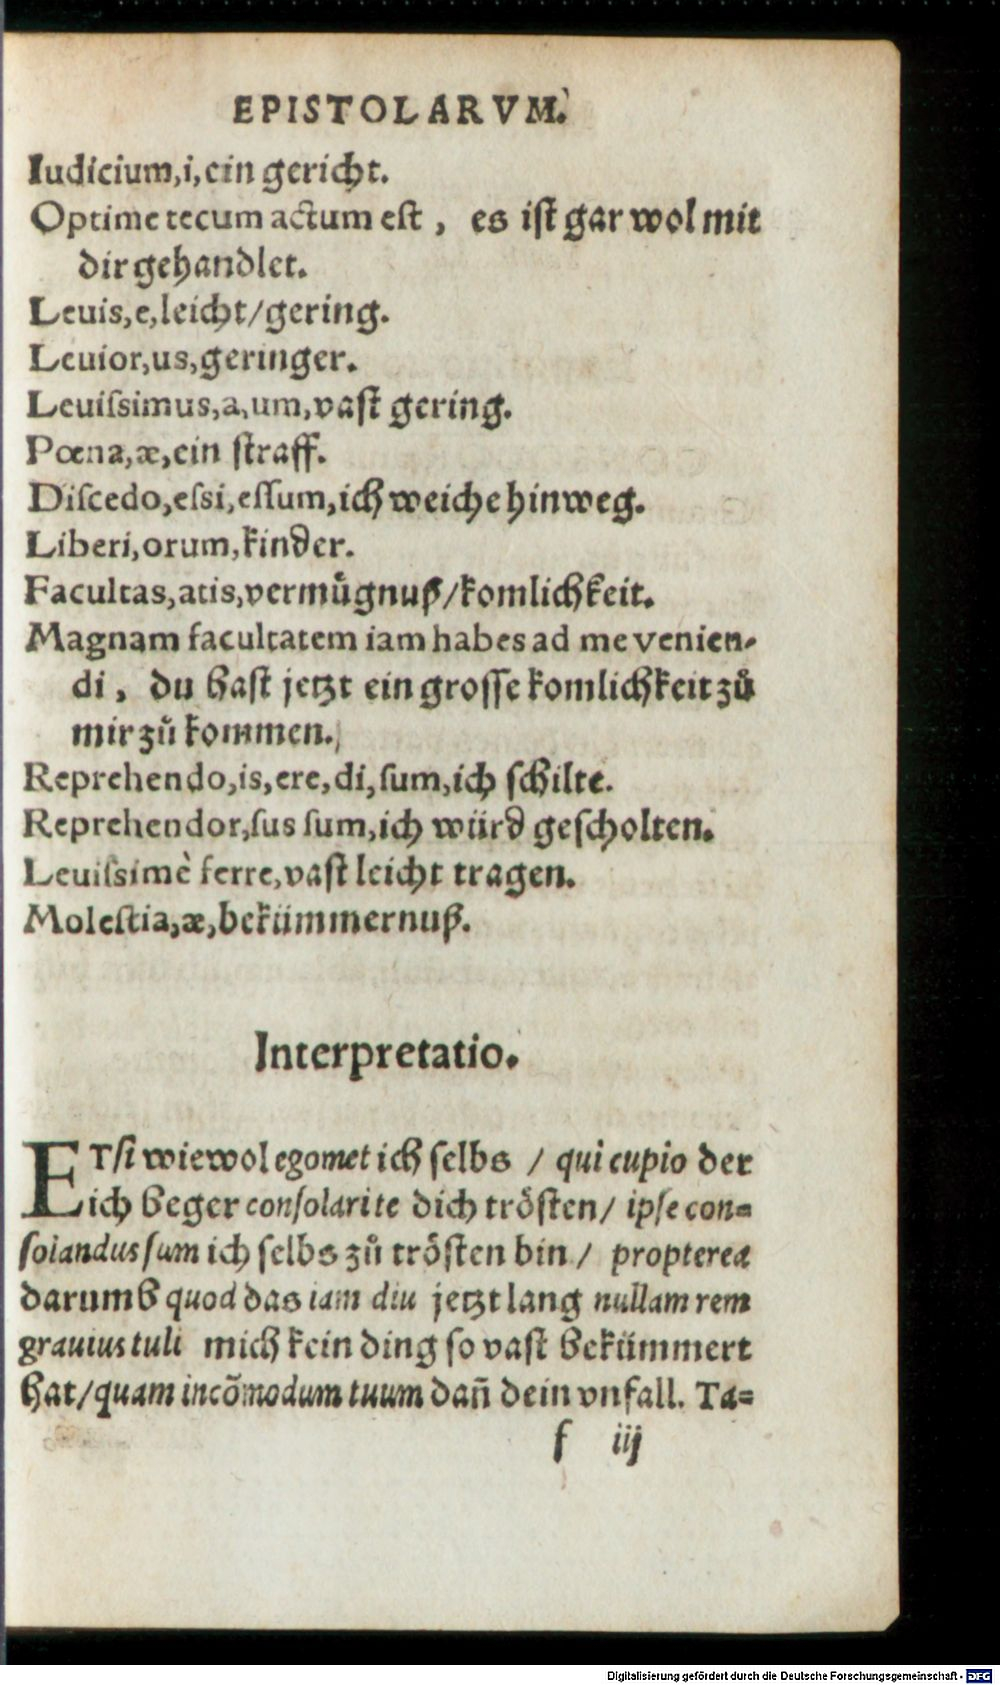 EPISTOLARVM.
Iudicium,i,ein gericht.
Optime tecum actum eſt , es iſt gar wol mit
dir gehandlet.
Leuis,e,leicht/gering.
Leuior,us,geringer.
Leuiſsimus,a,um,vaſt gering.
Pœna,æ,ein ſtraff.
Diſcedo,eſsi,eſſum,ich weiche hinweg.
Liberi,orum,kinder.
Facultas,atis,vermůgnuß/komlichkeit.
Magnam facultatem iam habes ad me venien-
di , du haſt jetzt ein groſſe komlichkeit zů
mir zů kommen.
Reprehendo,is,ere,di,ſum,ich ſchilte.
Reprehendor,ſus ſum,ich würd geſcholten.
Leuiſsimè ferre,vaſt leicht tragen.
Moleſtia,æ,bekümmernuß.
Interpretatio.
ETſi wiewol egomet ich ſelbs / qui cupio der
ich beger conſolari te dich tröſten/ ipſe con=
ſolandus ſum ich ſelbs zů tröſten bin / propterea
darumb quod das iam diu jetzt lang nullam rem
grauius tuli mich kein ding ſo vaſt bekümmert
hat/quam incõmodum tuum dañ dein vnfall. Ta=
f iij
Digitalisierung gefördert durch die Deutsche Forschungsgemeinschaft - DFG